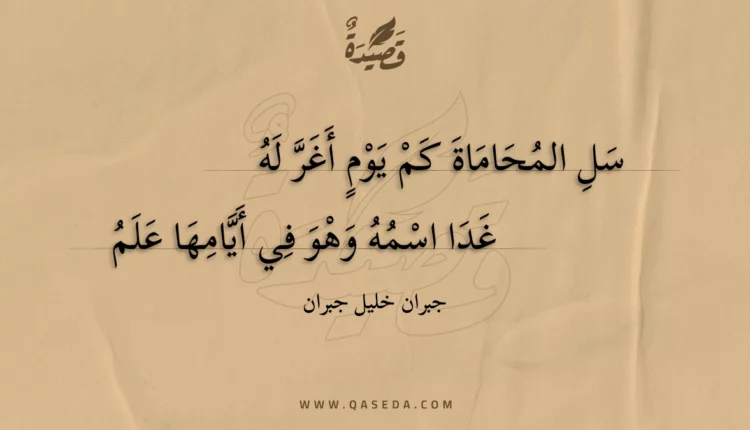 قَصِيْدَةٌ
سَلِ المُحَامَاةَ كَمْ يَوْمٍ أَغَرَّ لَهُ
غَدَا اسْمُهُ وَهْوَ فِي أَيَّامِهَا عَلَمُ
جبران خليل جبران
WWW.QASEDA.COM